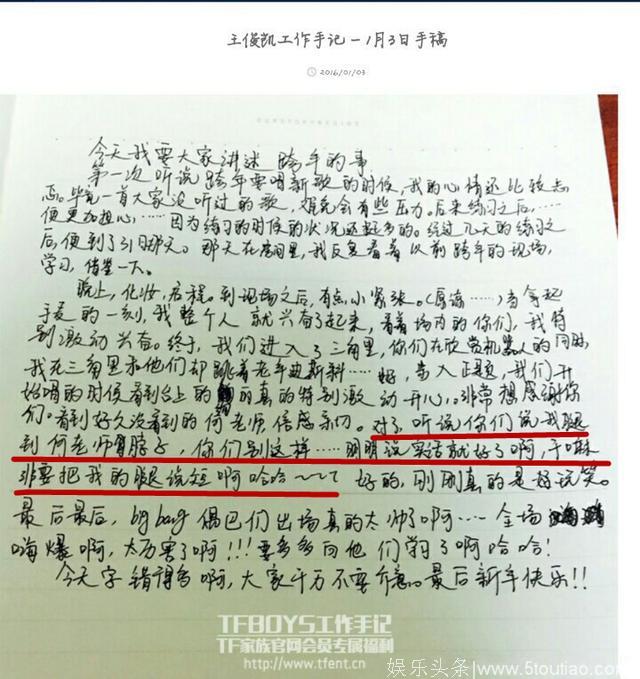 王俊凯工作手记-1月3日手稿
2016/01/03
今天我要大家讲述 跨年的事
第一次听说跨年要唱新歌的时候,我的心情还比较忐
忑。毕竟一首大家没听过的歌,难免会有些压力。后来练习之后……
便更加担心……因为练习的时候的状况还挺多的。经过几天的练习之
后,便到了31日那天。那天在房间里,我反复看着以前跨年的现场,
学习,借鉴一下。
晚上,化妆,启程。到现场之后,有点小紧张。(原谅……)当拿起
手麦的一刻,我整个人就兴奋了起来,看着场内的你们,我特
别激动兴奋。终于,我们进入了三角里,你们在欣赏机器人的同时,
我在三角里和他们却跳着老年迪斯科……好,步入正题,我们开
始唱的时候看到台上的 的真的特别激动开心。非常想感谢你
们。看到好久没看到的何老师倍感亲切。对了听说你们说我腿
到何老师胃脖子,你们别这样……明明说实话就好了啊,干嘛
非要把我的腿说短啊哈哈~~~ 好的,刚刚真的是好说笑。
最后最后,big bang 偶巴们出场真的太帅了啊……全场
嗨爆啊,太厉害了啊!!!要多多向他们学习了啊哈哈!
今天字错得多啊,大家千万不要介意。最后新年快乐!!
TFBOYS工作手记
TF家族官网会员专属福利
http://www.tfent.cn
娱乐头条/www.5toutiao.com